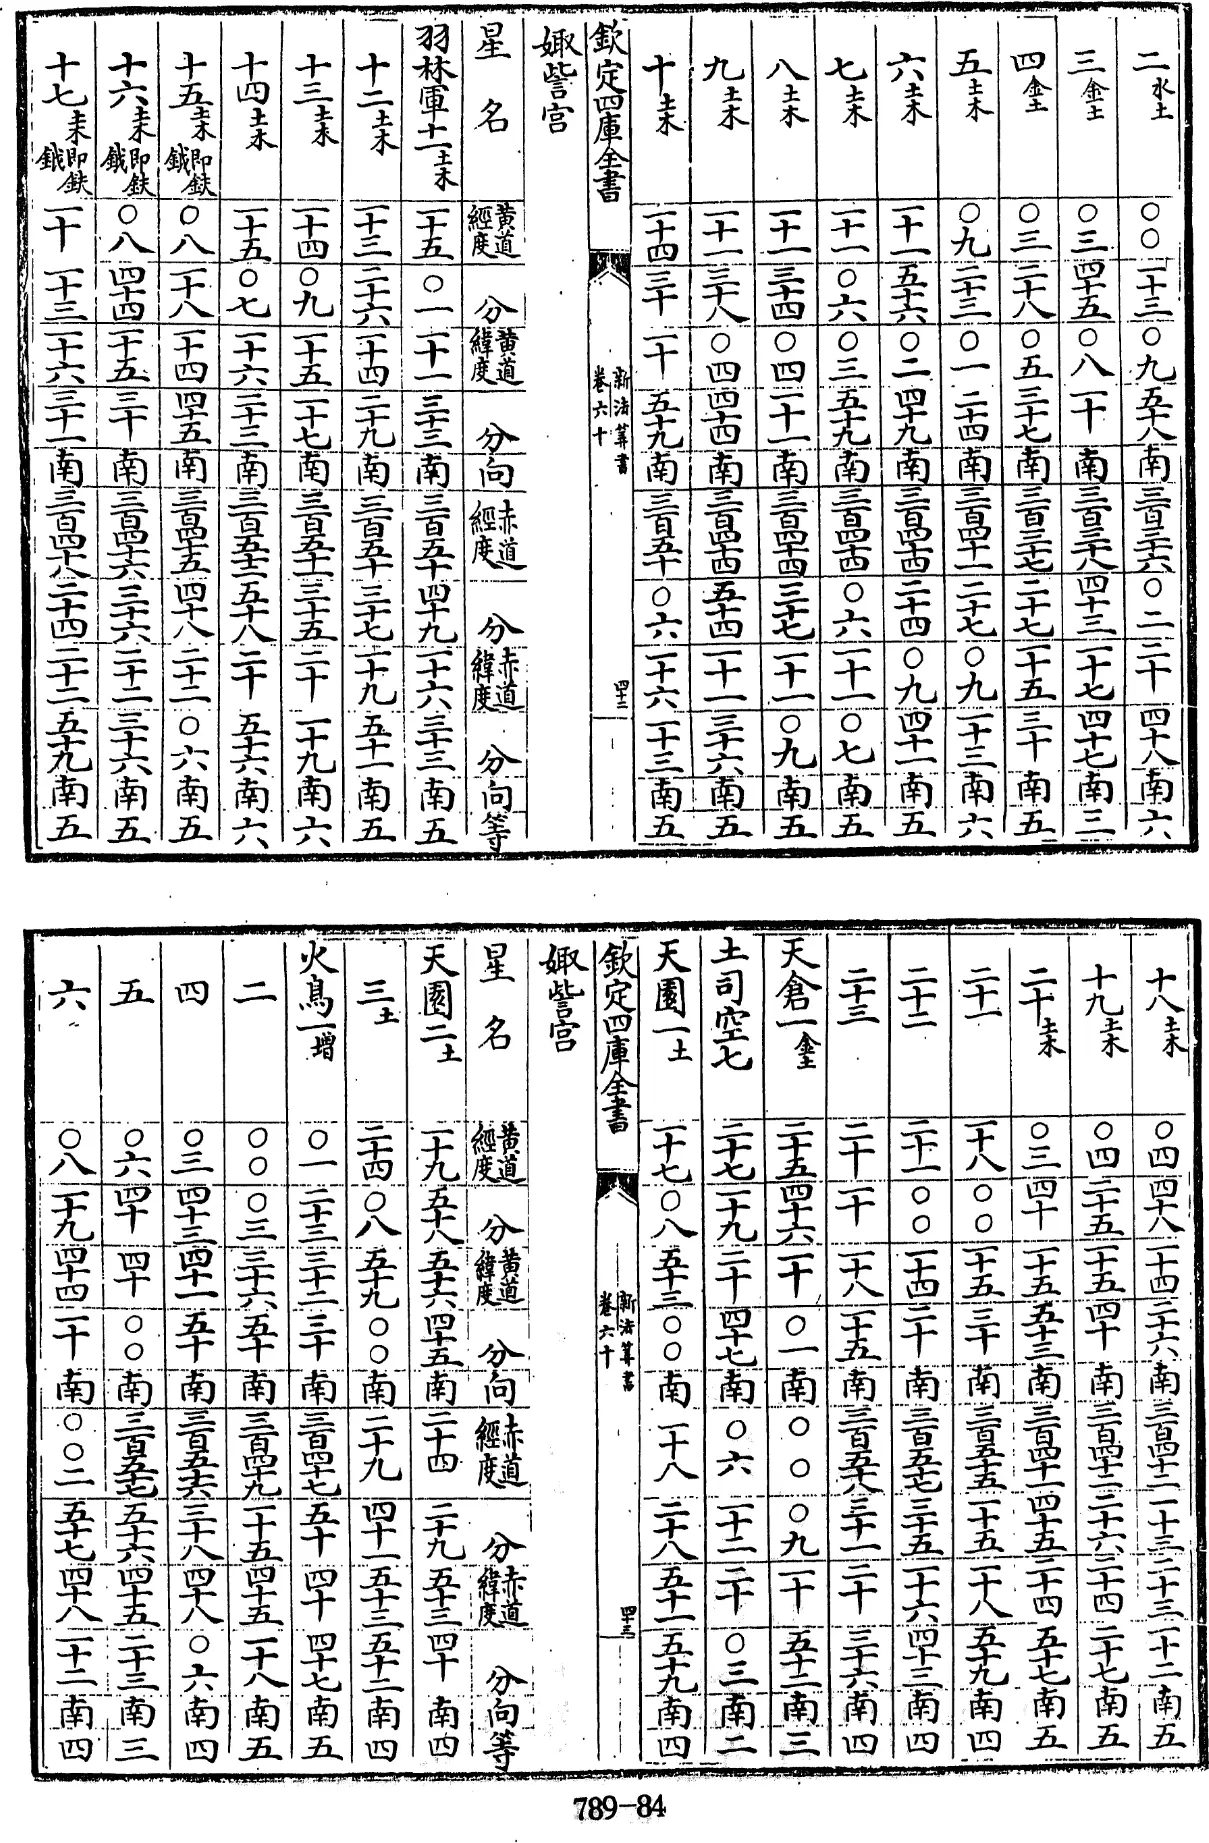 二水土 〇〇 一十三 〇九 五十八 南 三百三十六 〇二 二十 四十八 南 六
三金土 〇三 四十五 〇八 一十 南 三百三十八 四十三 一十七 四十七 南 三
四金土 〇三 二十八 〇五 三十七 南 三百三十七 二十七 一十五 三十 南 五
五土木 〇九 二十三 〇一 二十四 南 三百四十一 二十七 〇九 一十三 南 六
六土木 一十一 五十六 〇二 四十九 南 三百四十四 二十四 〇九 四十一 南 五
七土木 一十一 〇六 〇三 五十九 南 三百四十四 〇六 一十一 〇七 南 五
八土木 一十一 三十四 〇四 一十一 南 三百四十四 三十七 一十一 〇九 南 五
九土木 一十一 三十八 〇四 四十四 南 三百四十四 五十四 一十一 三十六 南 五
十土木 一十四 三十 一十 五十九 南 三百五十 〇六 一十六 一十三 南 五
欽定四庫全書 新法算書 卷六十 四十二
娵訾宮
星名 黃道經度 分 黃道緯度 分 向 赤道經度 分 赤道緯度 分 向 等
羽林軍十一土木 一十五 〇一 一十一 三十三 南 三百五十 四十九 一十六 三十三 南 五
十二土木 一十三 二十六 一十四 二十九 南 三百五十 三十七 一十九 五十一 南 五
十三土木 一十四 〇九 一十五 一十七 南 三百五十一 三十五 二十 一十九 南 六
十四土木 一十五 〇七 一十六 二十三 南 三百五十二 五十八 二十 五十六 南 六
十五土木即鈇鉞 〇八 一十八 一十四 四十五 南 三百四十五 四十八 二十二 〇六 南 五
十六土木即鈇鉞 〇八 四十四 一十五 三十 南 三百四十六 三十六 二十二 三十六 南 五
十七土木即鈇鉞 一十 一十三 一十六 三十一 南 三百四十八 二十四 二十二 五十九 南 五
十八土木 〇四 四十八 一十四 二十六 南 三百四十二 一十三 二十三 一十二 南 五
十九土木 〇四 二十五 一十五 四十 南 三百四十二 二十六 二十四 二十七 南 五
二十土木 〇三 四十 一十五 五十三 南 三百四十一 四十五 二十四 五十七 南 五
二十一 一十八 〇〇 一十五 三十 南 三百五十五 一十五 一十八 五十九 南 四
二十二 二十一 〇〇 一十四 二十 南 三百五十七 三十五 一十六 四十三 南 四
二十三 二十 一十 一十八 一十五 南 三百五十八 三十一 二十 三十六 南 四
天倉一金土 二十五 四十六 一十 〇一 南 〇〇 〇九 一十 五十二 南 三
土司空七 二十七 一十九 二十 四十七 南 〇六 一十二 二十 〇三 南 二
天園一土 一十七 〇八 五十三 〇〇 南 一十八 二十八 五十一 五十九 南 四
欽定四庫全書 新法算書 卷六十 四十三
娵訾宮
星名 黃道經度 分 黃道緯度 分 向 赤道經度 分 赤道緯度 分 向 等
天園二土 一十九 五十八 五十六 四十五 南 二十四 二十九 五十三 四十 南 四
三土 二十四 〇八 五十九 〇〇 南 二十九 四十一 五十三 五十二 南 四
火鳥一增 〇一 二十三 三十二 三十 南 三百四十七 五十 四十 四十七 南 五
二 〇〇 〇三 三十六 五十 南 三百四十九 一十五 四十五 一十八 南 五
四 〇三 四十三 四十一 五十 南 三百五十六 三十八 四十八 〇六 南 四
五 〇六 四十 四十 〇〇 南 三百五十七 五十六 四十五 二十三 南 三
六 〇八 一十九 四十四 一十 南 〇〇二 五十七 四十八 一十二 南 四
789-84